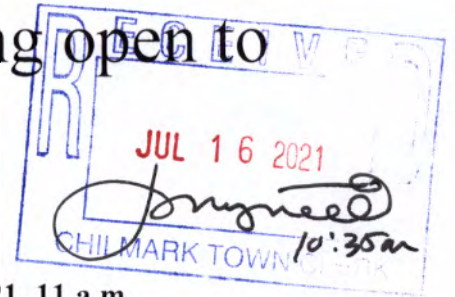 ng open to
RECEIVED
JUL 16 2021
10:35am
CHILMARK TOWN CLERK
21 11 a.m.